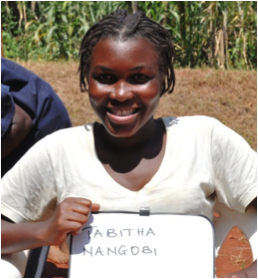 TABITHA
NANGOBI